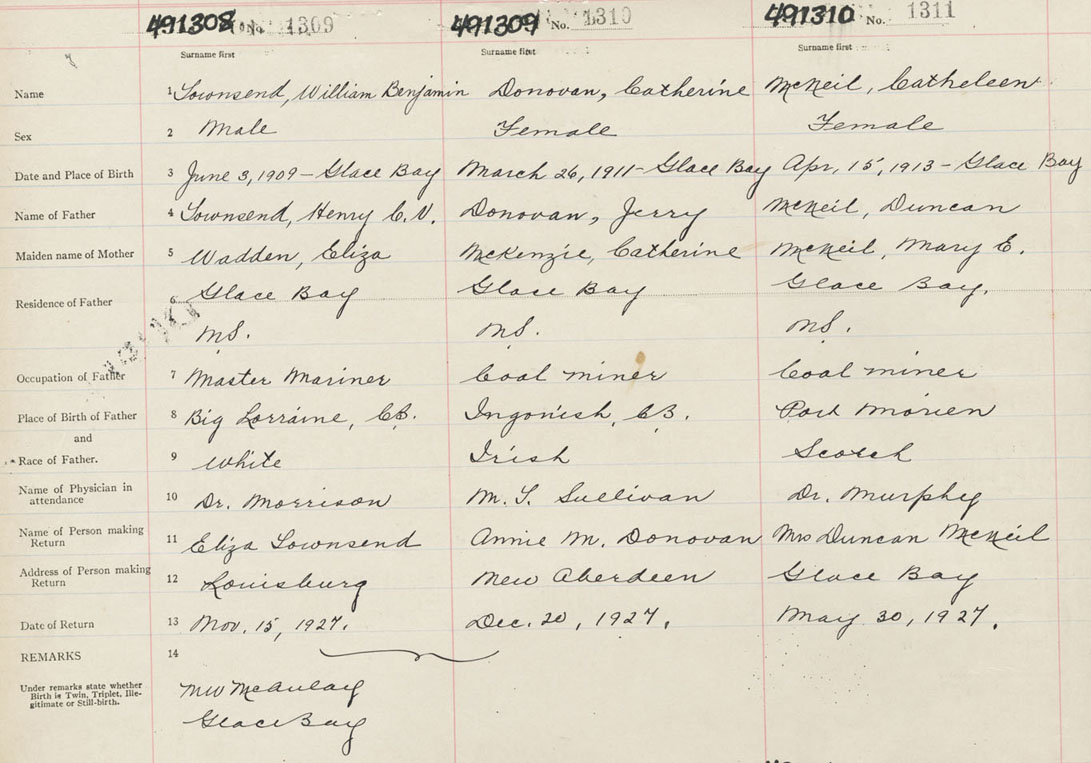 491308 No. 1309 491309 No. 1310 491310 No. 1311
Surname first Surname first Surname first
Name 1 Townsend, William Benjamin Donovan, Catherine McNeil, Catheleen
Sex 2 Male Female Female
Date and Place of Birth 3 June 3, 1909 - Glace Bay March 26, 1911 - Glace Bay Apr. 15, 1913 - Glace Bay
Name of Father 4 Townsend, Henry C. V. Donovan, Jerry McNeil, Duncan
Maiden name of Mother 5 Wadden, Eliza McKenzie, Catherine McNeil, Mary C.
Residence of Father 6 Glace Bay Glace Bay Glace Bay.
NS. NS. NS.
Occupation of Father 7 Master Mariner Coal miner Coal miner
Place of Birth of Father 8 Big Lorraine, CB. Ingonish, CB. Port Morien
and
Race of Father. 9 White Irish Scotch
Name of Physician in
attendance 10 Dr. Morrison M. T. Sullivan Dr. Murphy
Name of Person making
Return 11 Eliza Townsend Annie M. Donovan Mrs Duncan McNeil
Address of Person making
Return 12 Louisburg New Aberdeen Glace Bay
Date of Return 13 Nov. 15, 1927. Dec. 20, 1927. May 30, 1927.
REMARKS 14
Under remarks state whether
Birth is Twin, Triplet, Ille-
gitimate or Still-birth.
McAulay
Glace Bay